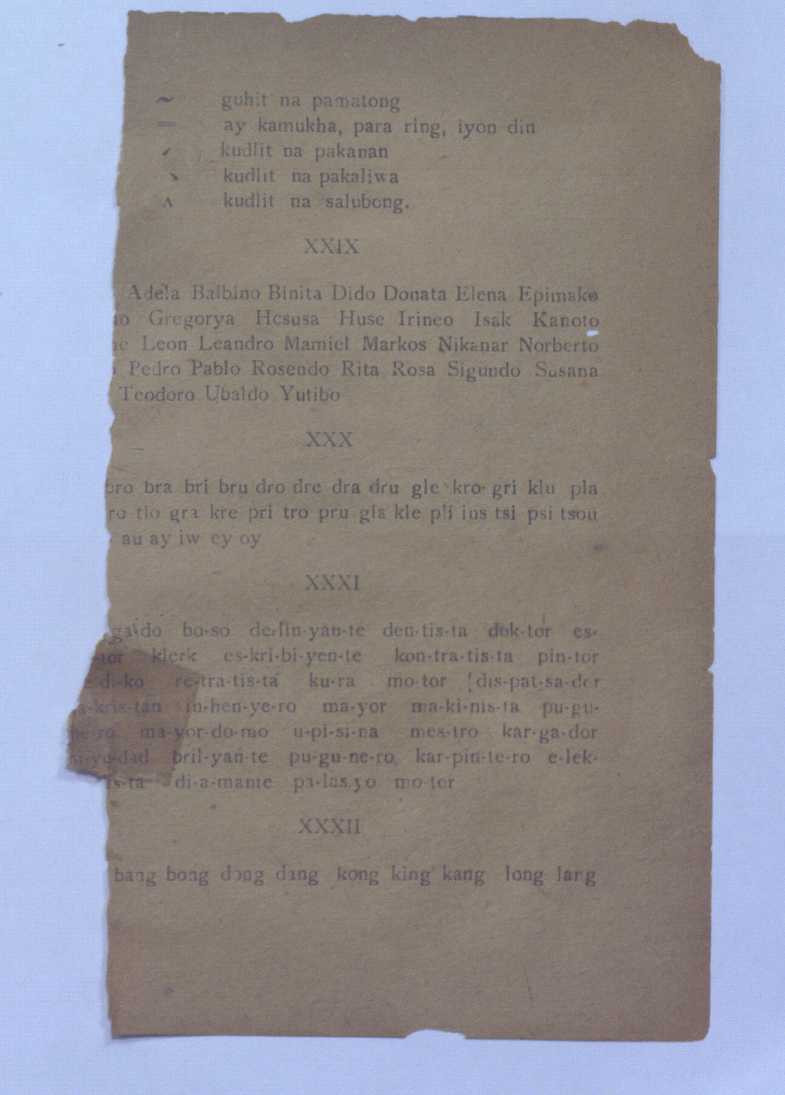 ~ guhit na pamatong
= ay kamukha, para ring, iyon din
kudlit na pakanan
kudlit na pakaliwa
ʌ kudlit na salubong.
XXIX
Adela Balbino Binita Dido Donata Elena Epimako
Gregorya Hesusa Huse Irineo Isak Kanoto
Leon Leandro Mamiel Markos Nikanar Norberto
Pedro Pablo Rosendo Rita Rosa Sigundo Susana
Teodoro Ubaldo Yutibo
XXX
bro bra bri bru dro dre dra dru gle kro gri klu pla
ro tlo gra kre pri tro pru gla kle pli ins tsi psi tsou
au ay iw ey oy
XXXI
ga-do bo-so de-lin-yan-te den-tis-ta dok-tor es-
tor klerk es-kri-bi-yen-te kon-tra-tis-ta pin-tor
di-ko re-tra-tis-ta ku-ra mo-tor dis-pat-sa-der
a-kris-tan in-hen-ye-ro ma-yor ma-ki-nis-ta pu-gu-
ne-ro ma-yor-do-mo u-pi-si-na mes-tro kar-ga-dor
bril-yan-te pu-gu-ne-ro, kar-pin-te-ro e-lek-
is-ta di-a-mante pa-las-yo mo-tor
XXXII
bang bong dong dang kong king kang long lang